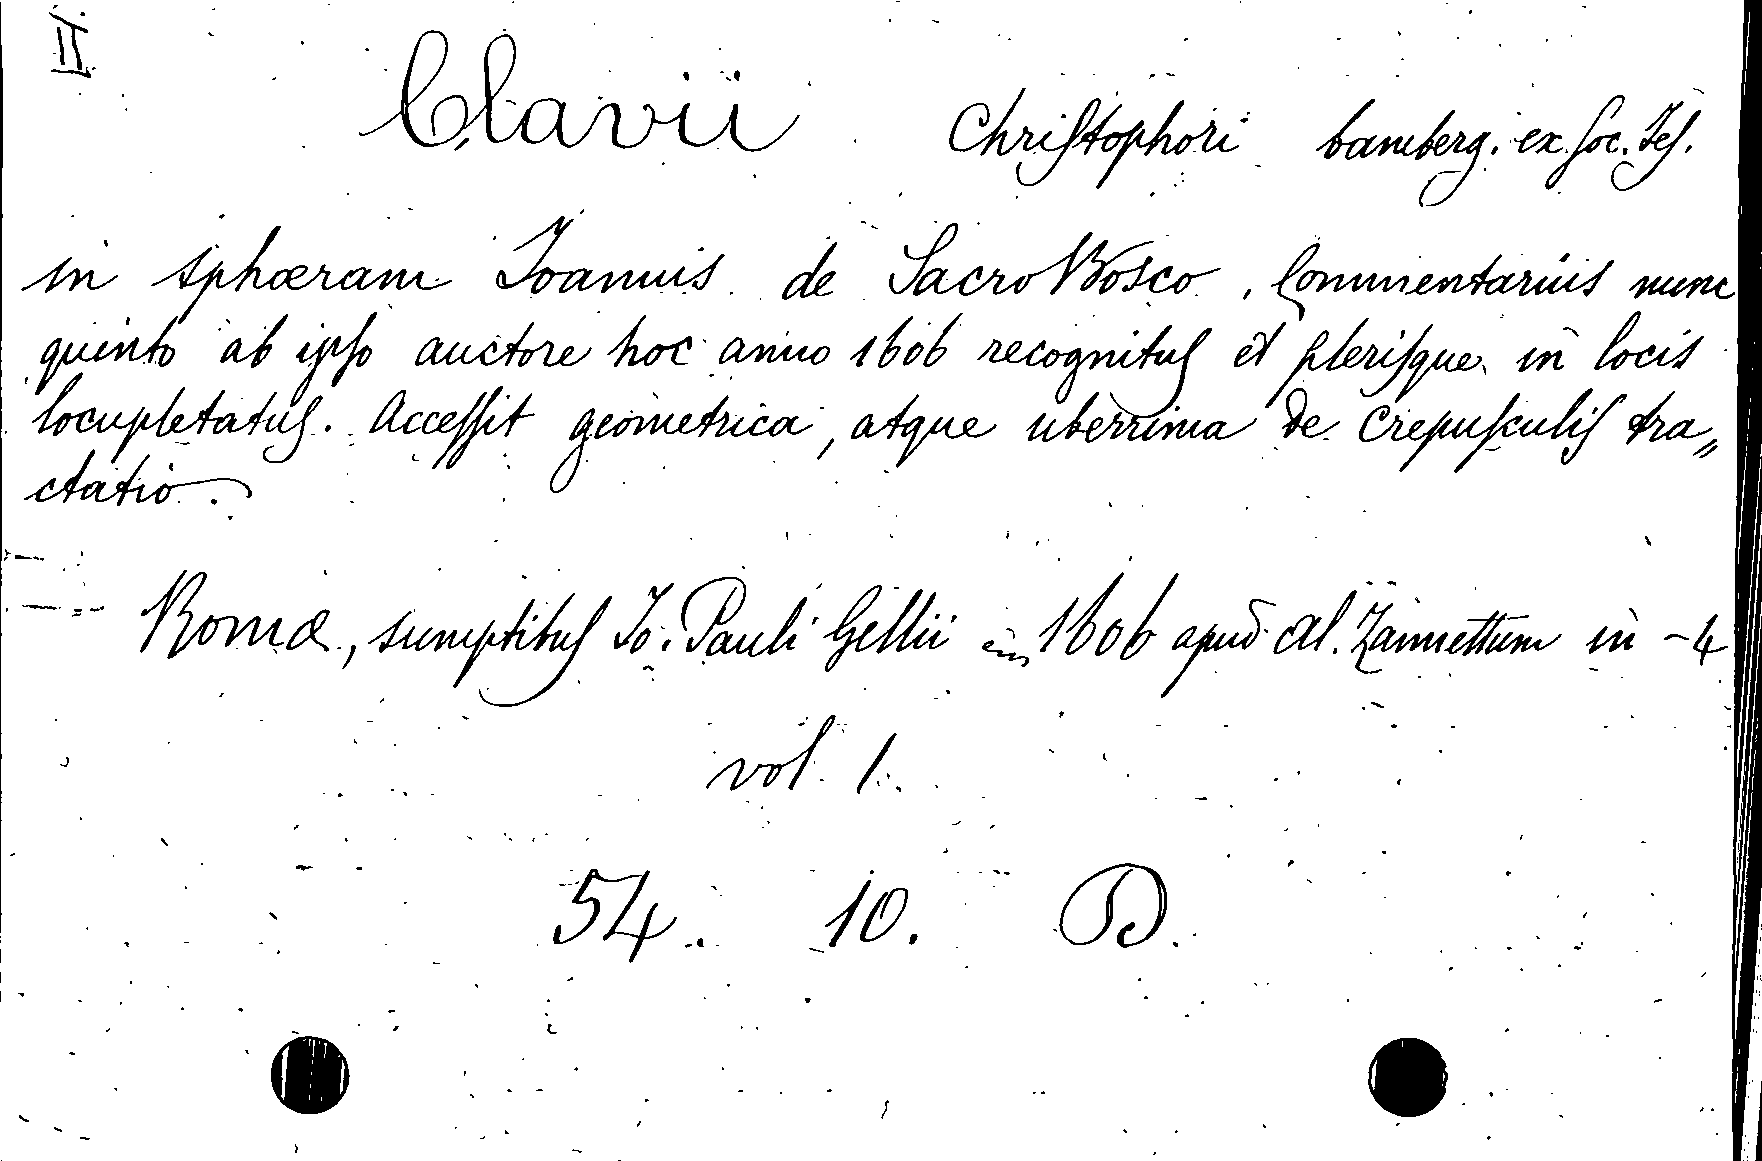 II
Clavii Christophori bamberg. ex Soc. Jes.
in sphæram Joannis de Sacro Bosco, Commentariiis nunc
quinto ab ipso auctore hoc anno 1606 recognitus et plerisque in locis
locupletatus. Accessit geometrica, atque uberrima de Crepusculis tra„
ctatio.
Romæ, sumptibus Jo. Pauli Gellii 1606 apud Al. Zannettum in -4
vol. 1.
54. 10. D.